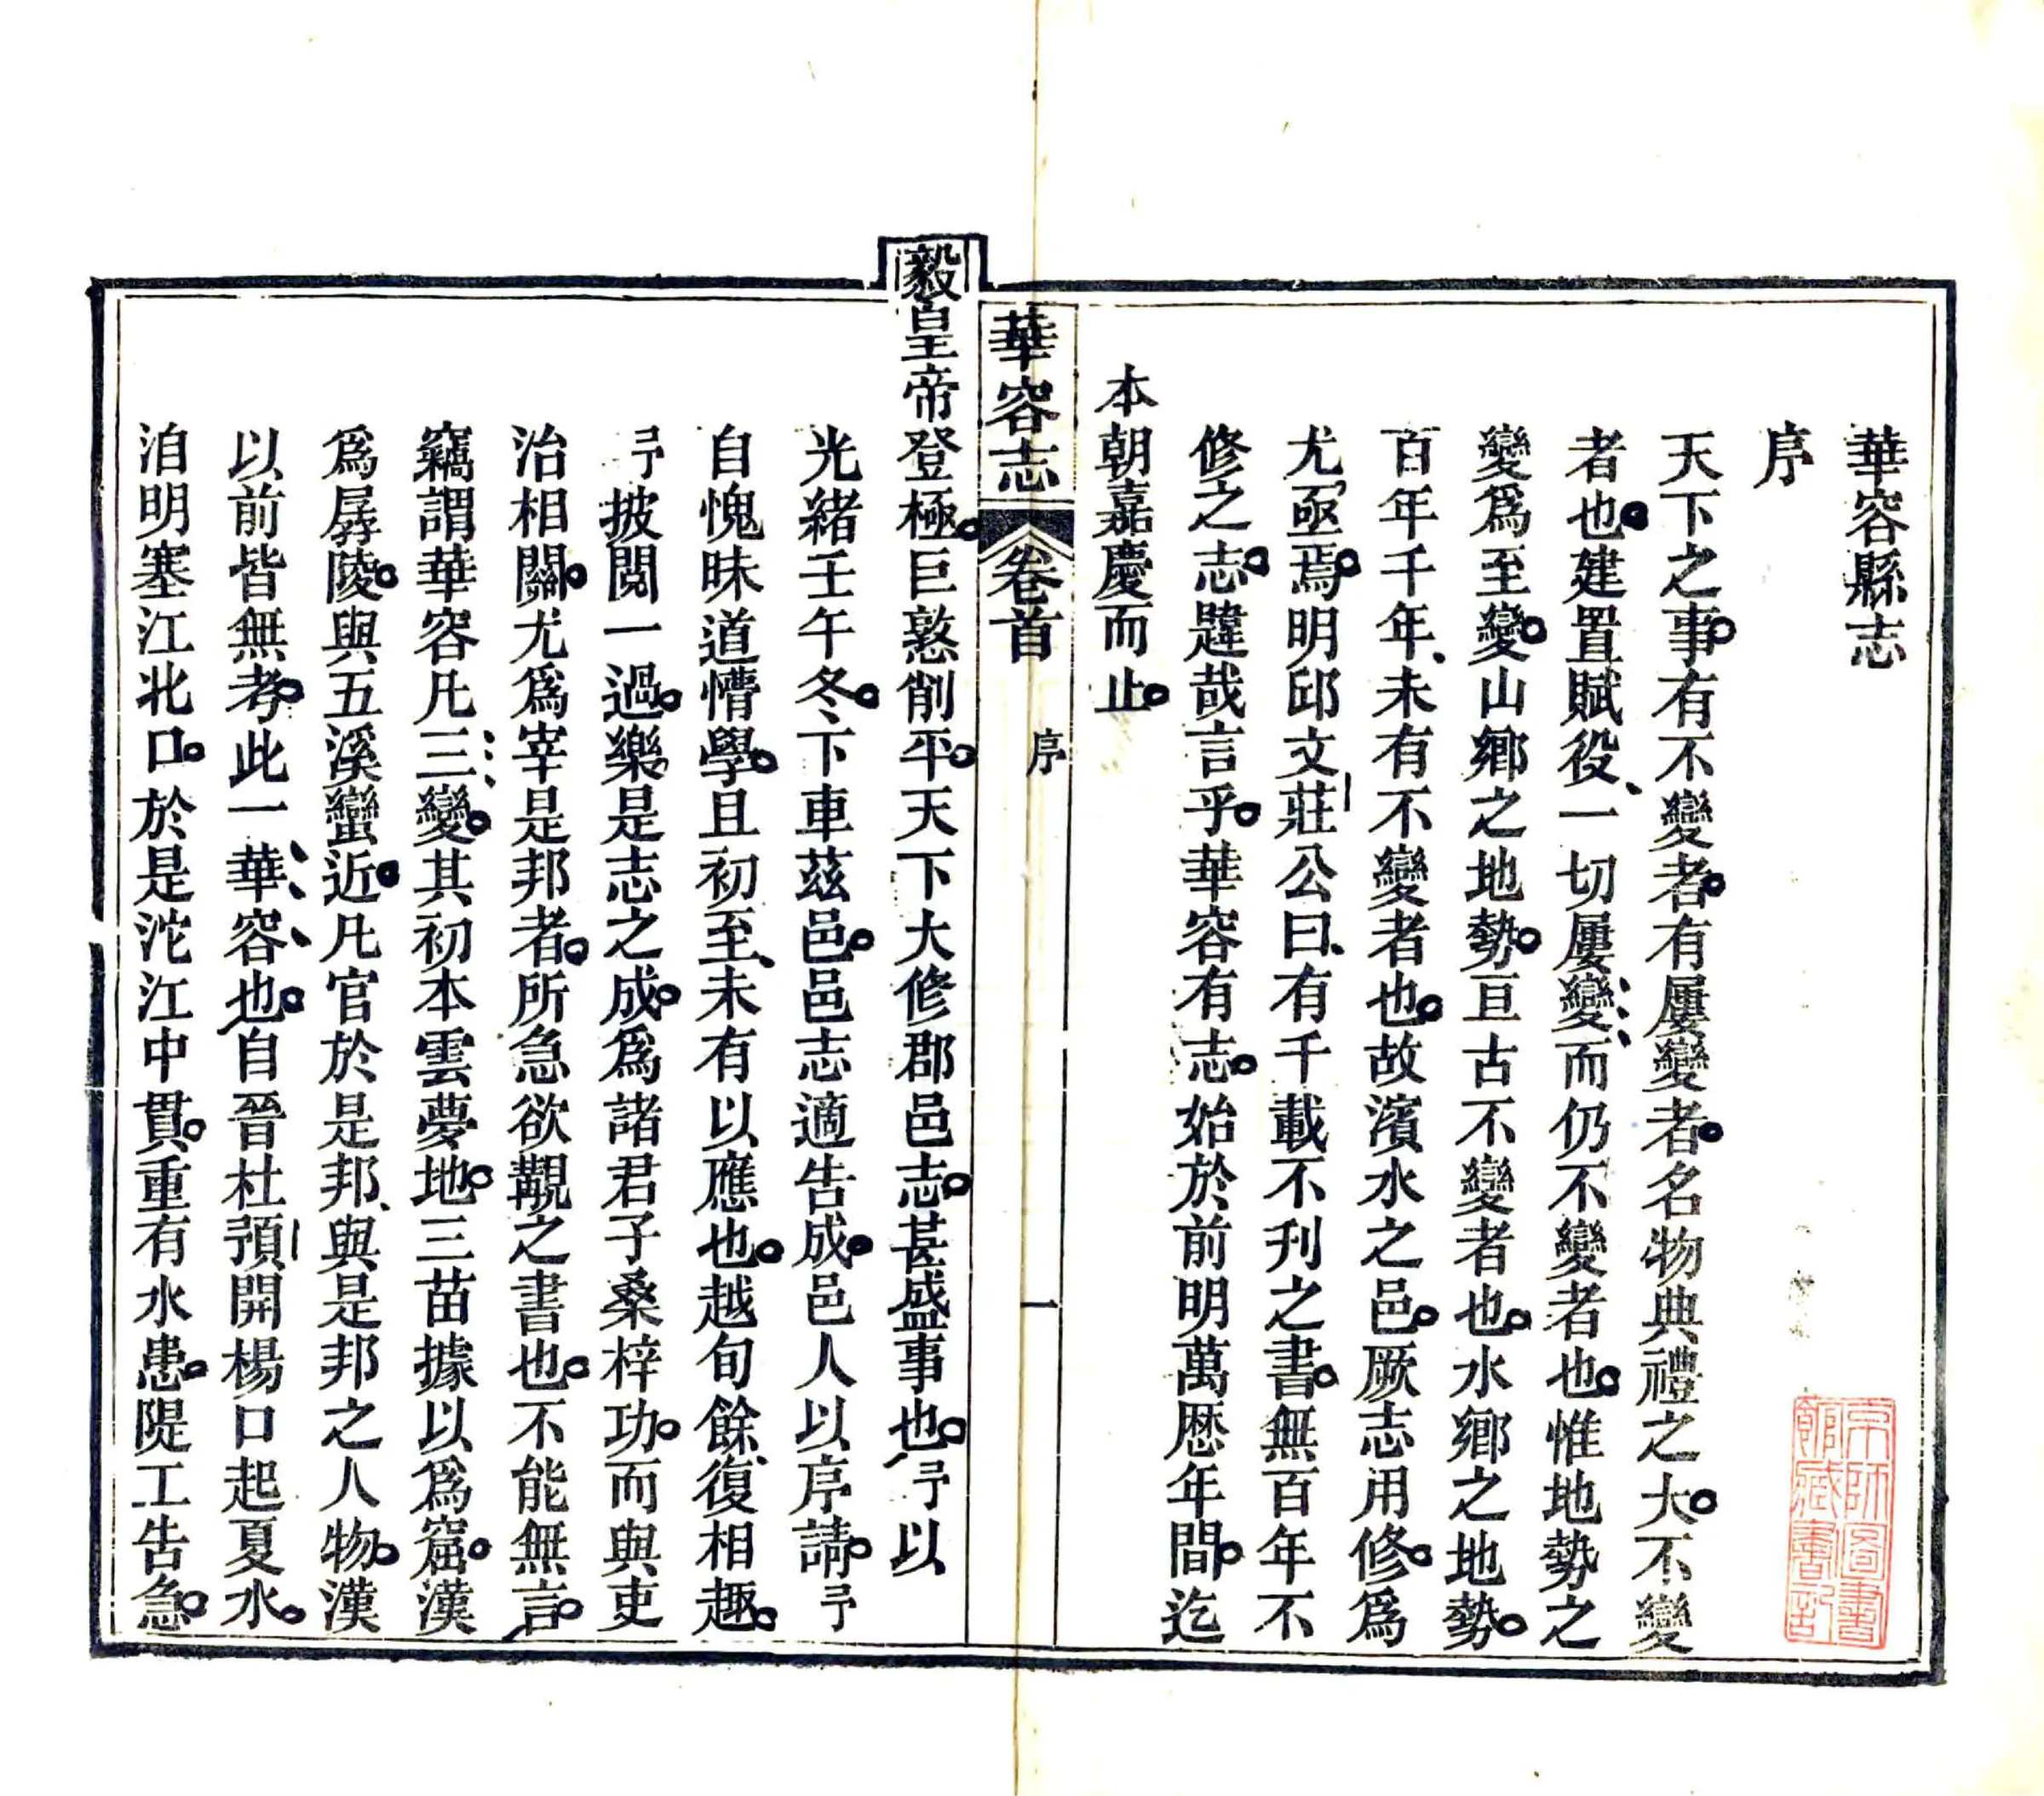 華容縣志
序
天下之事有不變者有屢變者名物典禮之大不變
者也建置賦役一切屢變而仍不變者也惟地勢之
變爲至變山鄉之地勢亘古不變者也水鄉之地勢
百年千年未有不變者也故濱水之邑厥志用修爲
尤亟焉明邱文莊公曰有千載不刋之書無百年不
修之志韙哉言乎華容有志始於前明萬厯年間迄
本朝嘉慶而止
華容志 卷首 序 一
毅皇帝登極巨憝削平天下大修郡邑志甚盛事也予以
光緒壬午冬下車茲邑邑志適告成邑人以序請予
自愧昧道懵學且初至未有以應也越旬餘復相趣
予披閱一過樂是志之成爲諸君子桑梓功而與吏
治相關尤爲宰是邦者所急欲覯之書也不能無言
竊謂華容凡三變其初本雲夢地三苗據以爲窟漢
爲孱陵與五溪蠻近凡官於是邦與是邦之人物漢
以前皆無考此一華容也自晉杜預開楊口起夏水
洎明塞江北口於是沱江中貫重有水患隄工告急
京師圖書
館藏書記